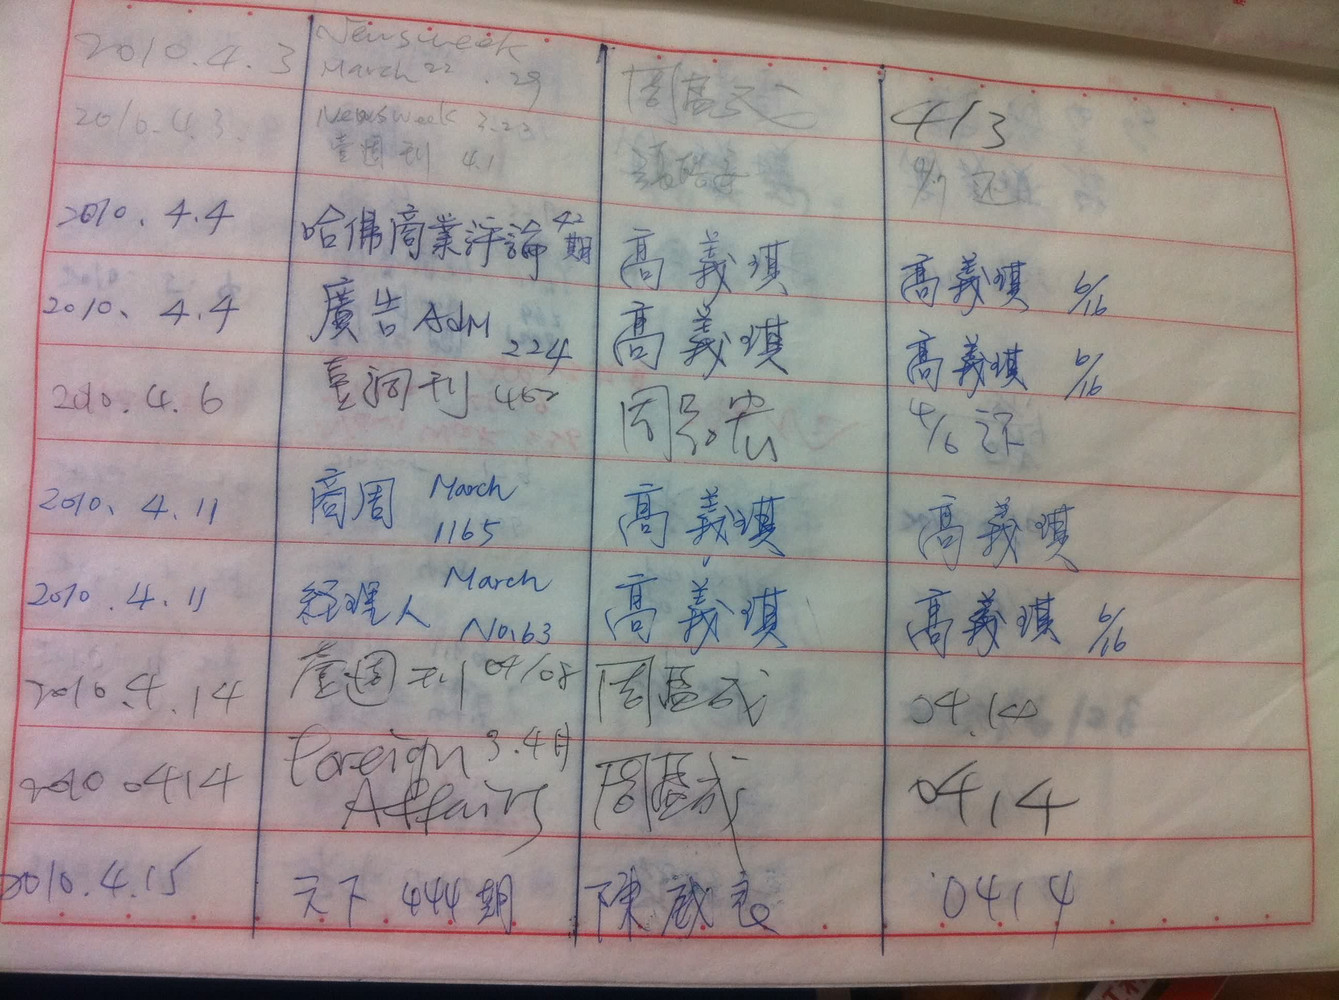 2010.4.3 Newsweek March 22.29 周 4/3
2010.4.3. Newsweek 3.22 壹週刊 4.1 4/7 还
2010.4.4 哈佛商業評論 42期 高義琪 高義琪 6/16
2010.4.4 廣告 Adm 224 高義琪 高義琪 6/16
2010.4.6 壹週刊 462 周 宏 4/6
2010.4.11 商周 March 1165 高義琪 高義琪
2010.4.11 経理人 March No.63 高義琪 高義琪 6/16
2010.4.14 壹週刊 04/08 周盈成 04.14
2010 0414 Foreign Affairs 3.4月 周盈成 0414
2010.4.15 天下 444期 陳 良 0414